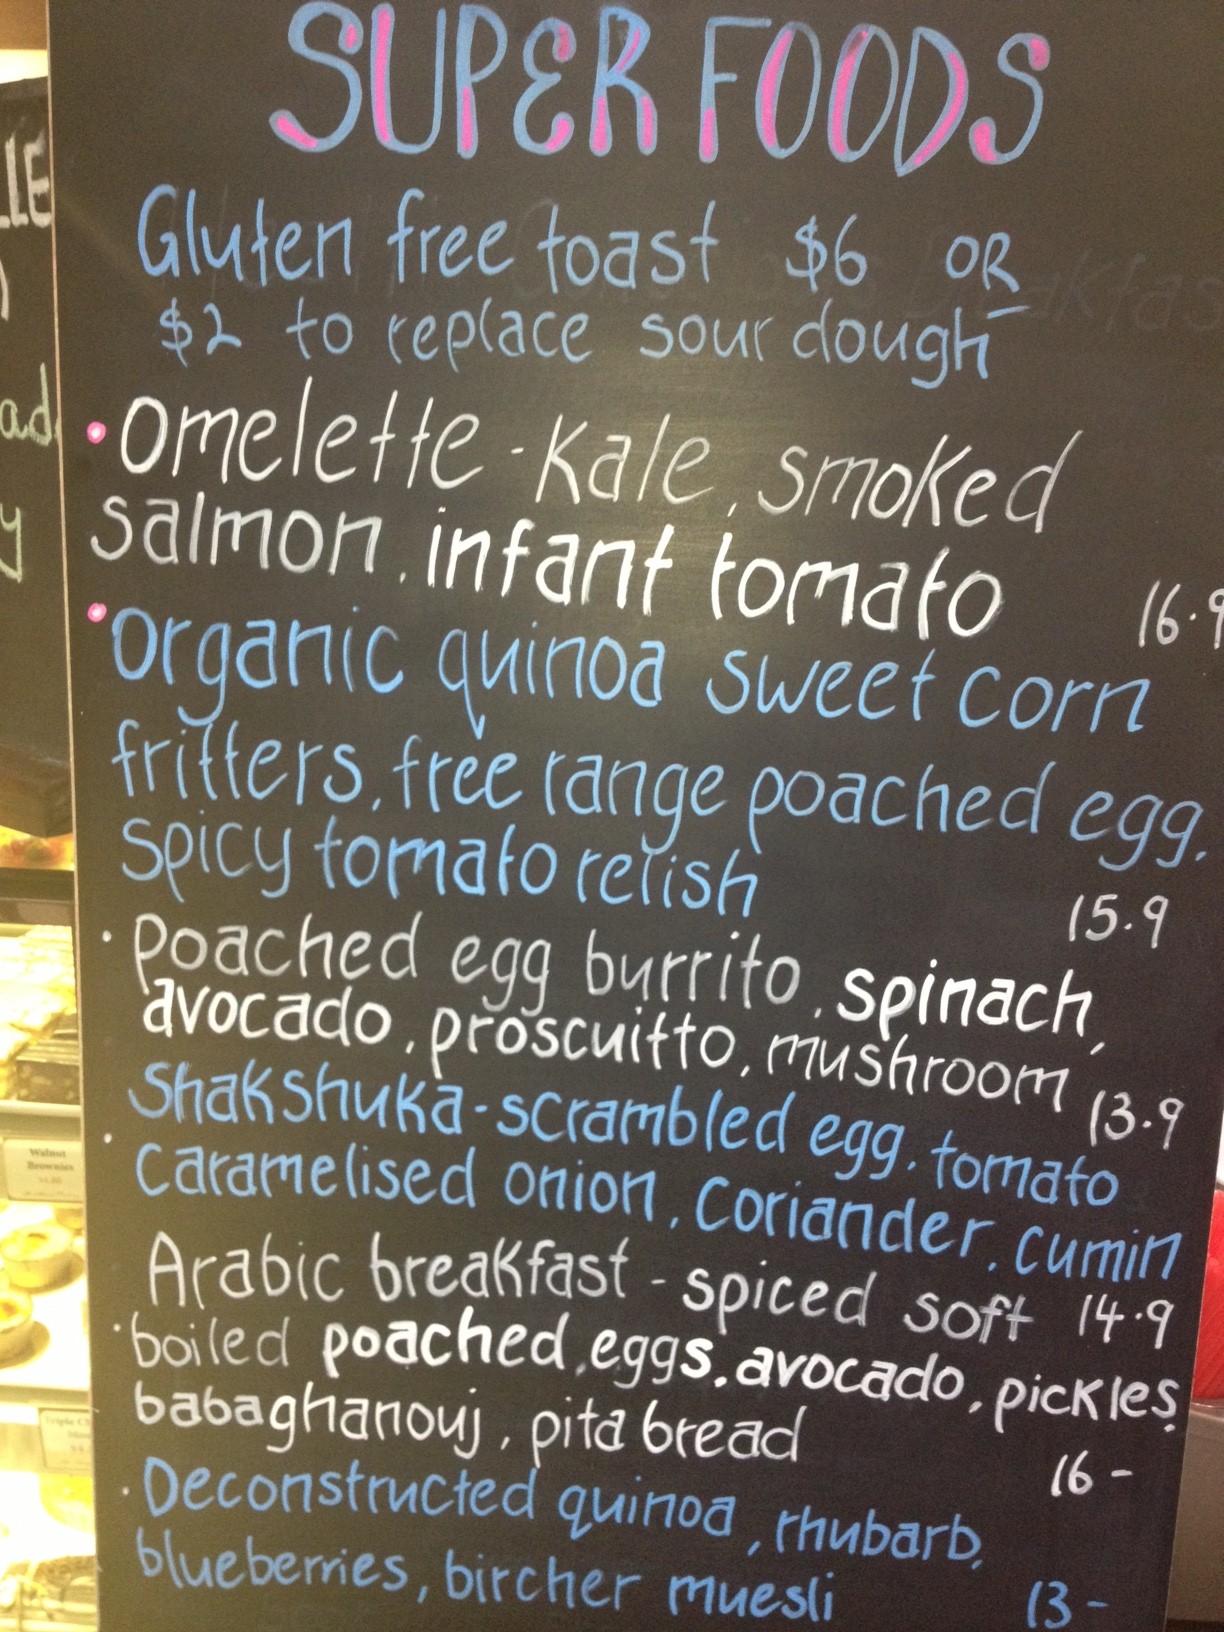 SUPER FOODS
Gluten free toast $6 OR
$2 to replace sour dough
• Omelette - Kale, smoked
salmon, infant tomato 16.9
• Organic quinoa sweet corn
fritters, free range poached egg,
spicy tomato relish 15.9
• Poached egg burrito, spinach,
avocado, proscuitto, mushroom 13.9
Shakshuka - scrambled egg, tomato
• Caramelised onion, coriander, cumin
14.9
Arabic breakfast - spiced soft
• boiled poached, eggs, avocado, pickles,
babaghanouj, pita bread 16 -
• Deconstructed quinoa, rhubarb,
blueberries, bircher muesli 13 -
LLE
ad
y
Walnut
Brownies
Triple C